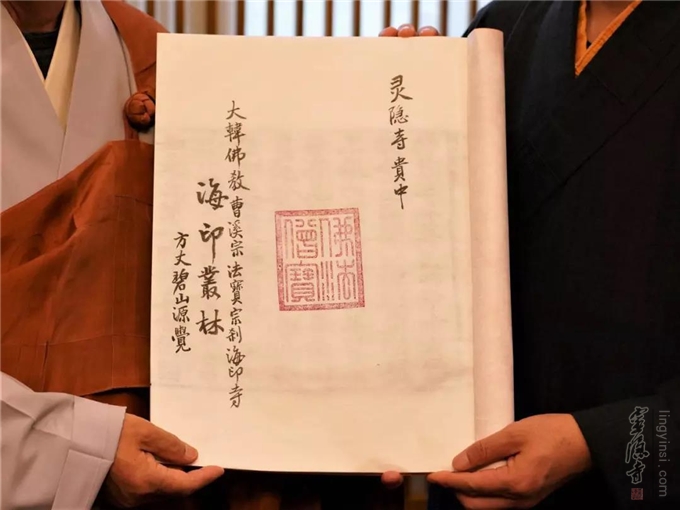 灵隐寺貴中
佛法
僧寶
大韓佛教曹溪宗法寶宗刹海印寺
海印叢林
方丈碧山源覺
靈隱寺
lingyinsi.com